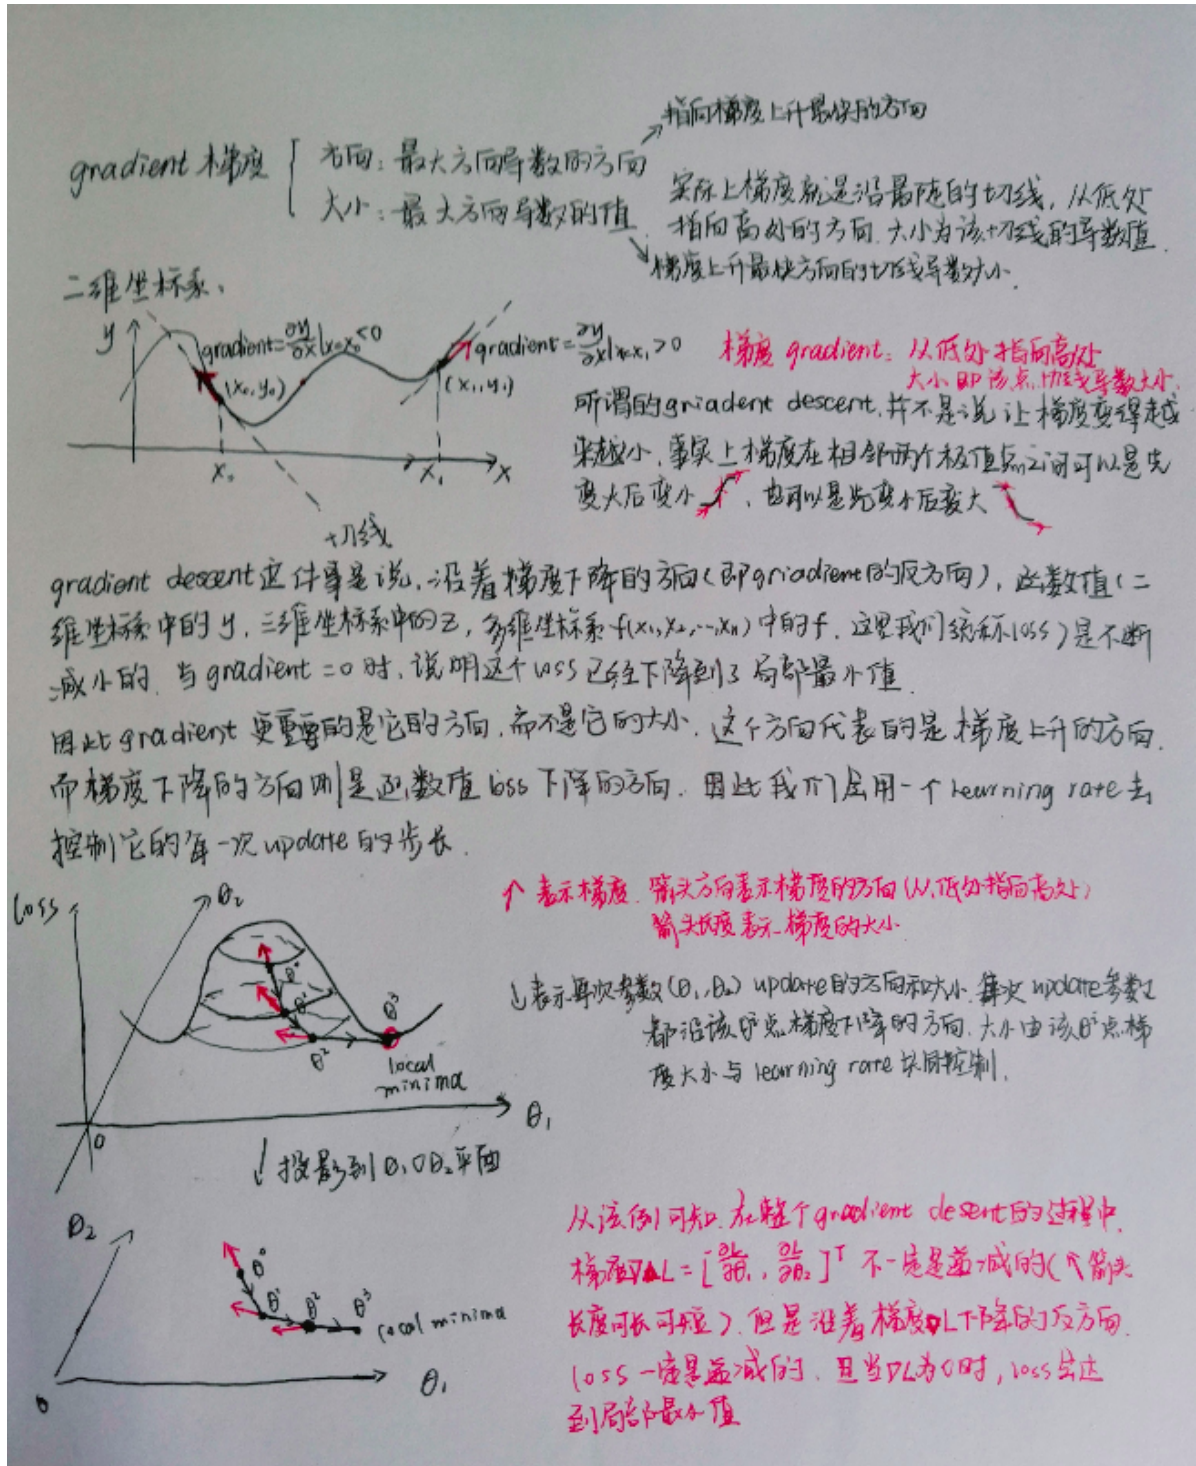 指向梯度上升最快的方向
gradient 梯度 { 方向：最大方向导数的方向
大小：最大方向导数的值
实际上梯度就是沿最陡的切线，从低处
指向高处的方向，大小为该切线的导数值
梯度上升最快方向的切线导数大小.
二维坐标系.
y
gradient=∂y/∂x|x=x₀<0
(x₀,y₀)
gradient=∂y/∂x|x=x₁>0
(x₁,y₁)
x₀
x₁
x
切线
梯度 gradient: 从低处指向高处
大小即该点切线导数大小.
所谓的griadent descent,并不是说让梯度变得越
来越小,事实上梯度在相邻两个极值点之间可以是先
变大后变小 、也可以是先变小后变大
gradient descent这件事是说,沿着梯度下降的方向(即griadient的反方向), 函数值(二
维坐标系中的y,三维坐标系中的z,多维坐标系f(x₁,x₂,…,xₙ)中的f,这里我们统称loss)是不断
减小的. 当gradient=0时,说明这个loss已经下降到了局部最小值.
因此gradient更重要的是它的方向,而不是它的大小,这个方向代表的是梯度上升的方向.
而梯度下降的方向则是函数值loss下降的方向. 因此我们会用一个learning rate去
控制它的每一次update的步长.
loss
θ₂
θ⁰
θ¹
θ²
θ³
local
minima
θ₁
0
↑ 表示梯度. 箭头方向表示梯度的方向(从低处指向高处)
箭头长度表示梯度的大小.
↓表示每次参数(θ₁,θ₂) update的方向和大小,每次update参数
都沿该θⁱ点梯度下降的方向.大小由该θⁱ点梯
度大小与learning rate共同控制.
↓投影到θ₁Oθ₂平面
θ₂
θ⁰
θ¹
θ²
θ³
local minima
θ₁
0
从该例可知,在整个gradient desent的过程中,
梯度∇L=[∂L/∂θ₁, ∂L/∂θ₂]ᵀ 不一定是递减的(↑箭头
长度可长可短).但是沿着梯度∇L下降的反方向,
loss一定是递减的. 且当∇L为0时, loss会达
到局部最小值